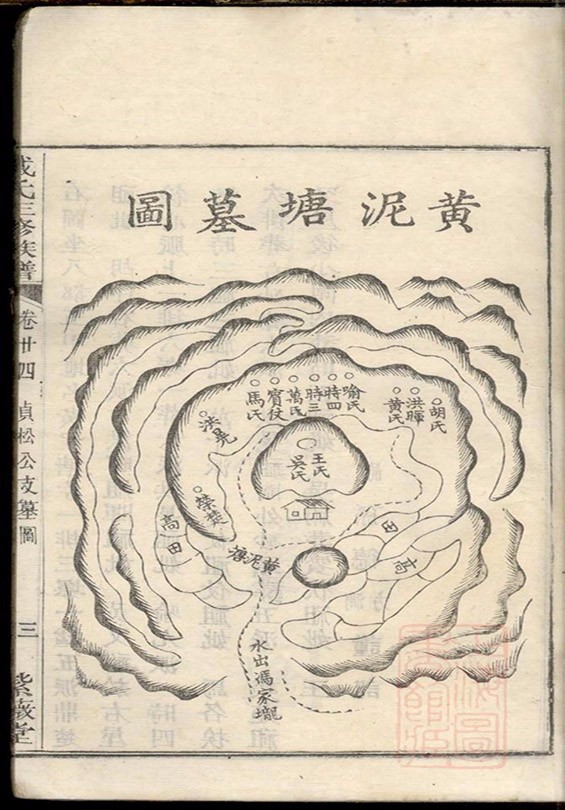 黃泥塘墓圖
胡氏
洪暉
黃氏
喻氏
時四
時三
萬氏
賓仗
馬氏
洪晃
王氏
吳氏
榮楚
高田
高
田
黃泥塘
水出馮家壠
成氏三修族譜
卷廿四
貞松公支墓圖
三
紫薇堂